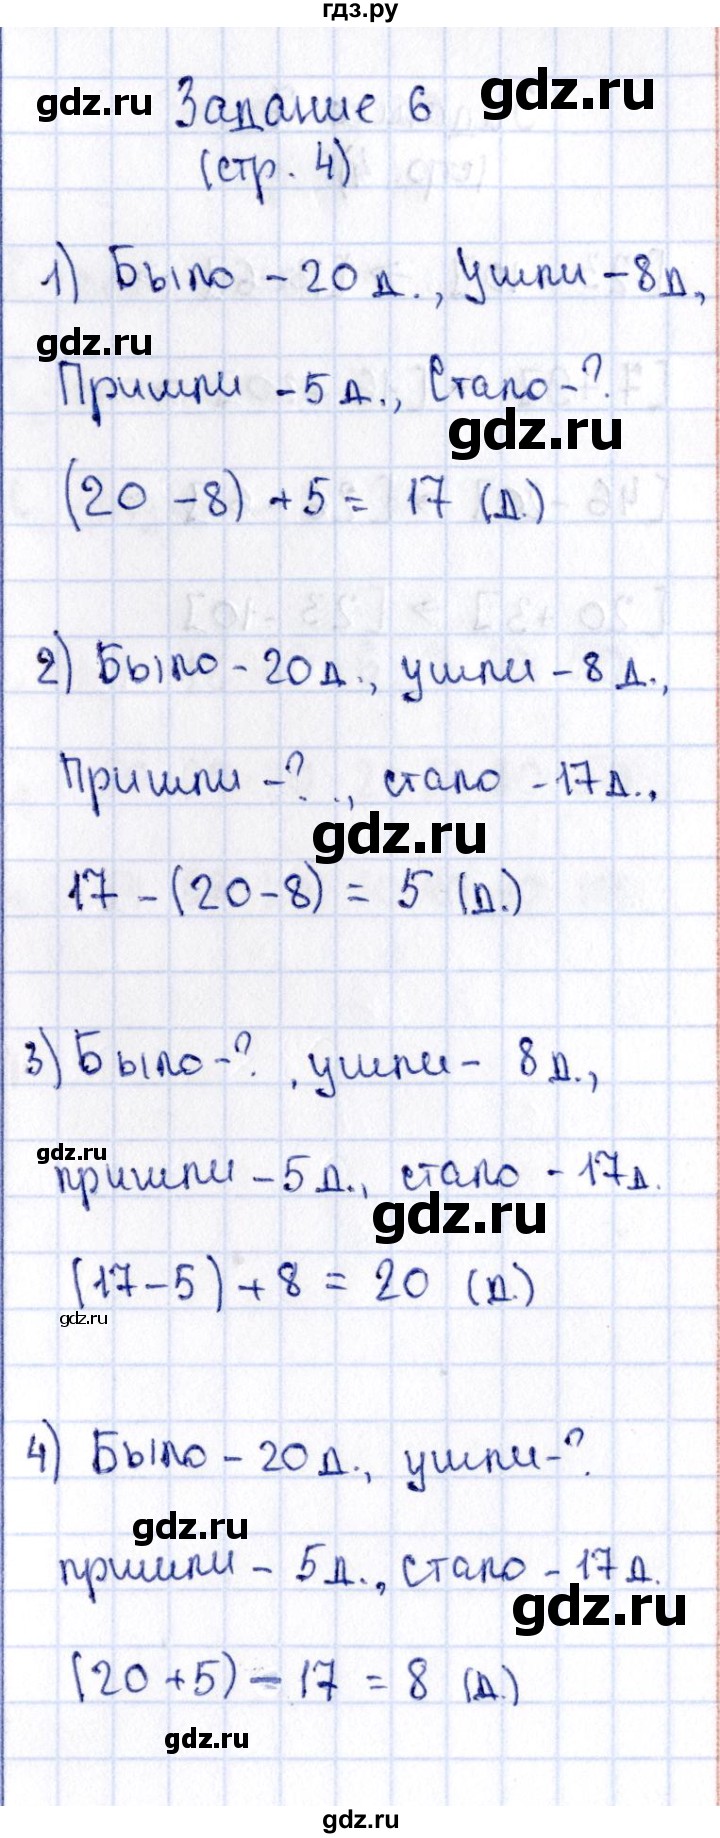 гдз.ру
gdz.ru
gdz.ru
Задание 6
(стр. 4)
1) Было - 20 д., Ушли - 8 д,
gdz.ru
Пришли - 5 д., Стало - ?
gdz.ru
(20 - 8) + 5 = 17 (д.)
2) Было - 20 д., ушли - 8 д.,
Пришли - ? ., стало - 17 д.,
gdz.ru
17 - (20 - 8) = 5 (д.)
3) Было - ? , ушли - 8 д.,
gdz.ru
пришли - 5 д., стало - 17 д.
gdz.ru
(17 - 5) + 8 = 20 (д.)
gdz.ru
4) Было - 20 д., ушли - ?
gdz.ru
пришли - 5 д., стало - 17 д.
gdz.ru
(20 + 5) - 17 = 8 (д.)
gdz.ru
gdz.ru